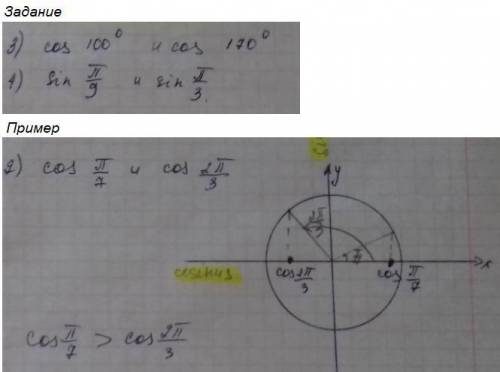 Задание
3) cos 100° и cos 170°
4) sin π/9 и sin π/3.
Пример
2) cos π/7 и cos 2π/3
y
2π/3
π/7
x
cosинус
cos 2π/3
cos π/7
cos π/7 > cos 2π/3